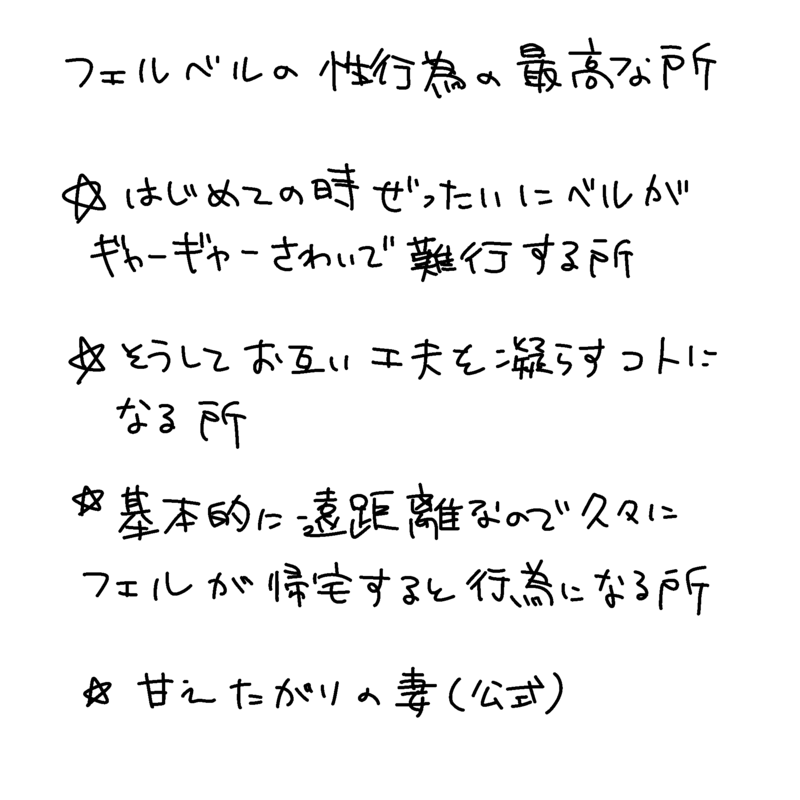 フェルベルの性行為の最高な所
☆はじめての時ぜったいにベルが
ギャーギャーさわいで難行する所
☆そうしてお互い工夫を凝らすコトに
なる所
☆基本的に遠距離なので久々に
フェルが帰宅すると行為になる所
☆甘えたがりの妻(公式)